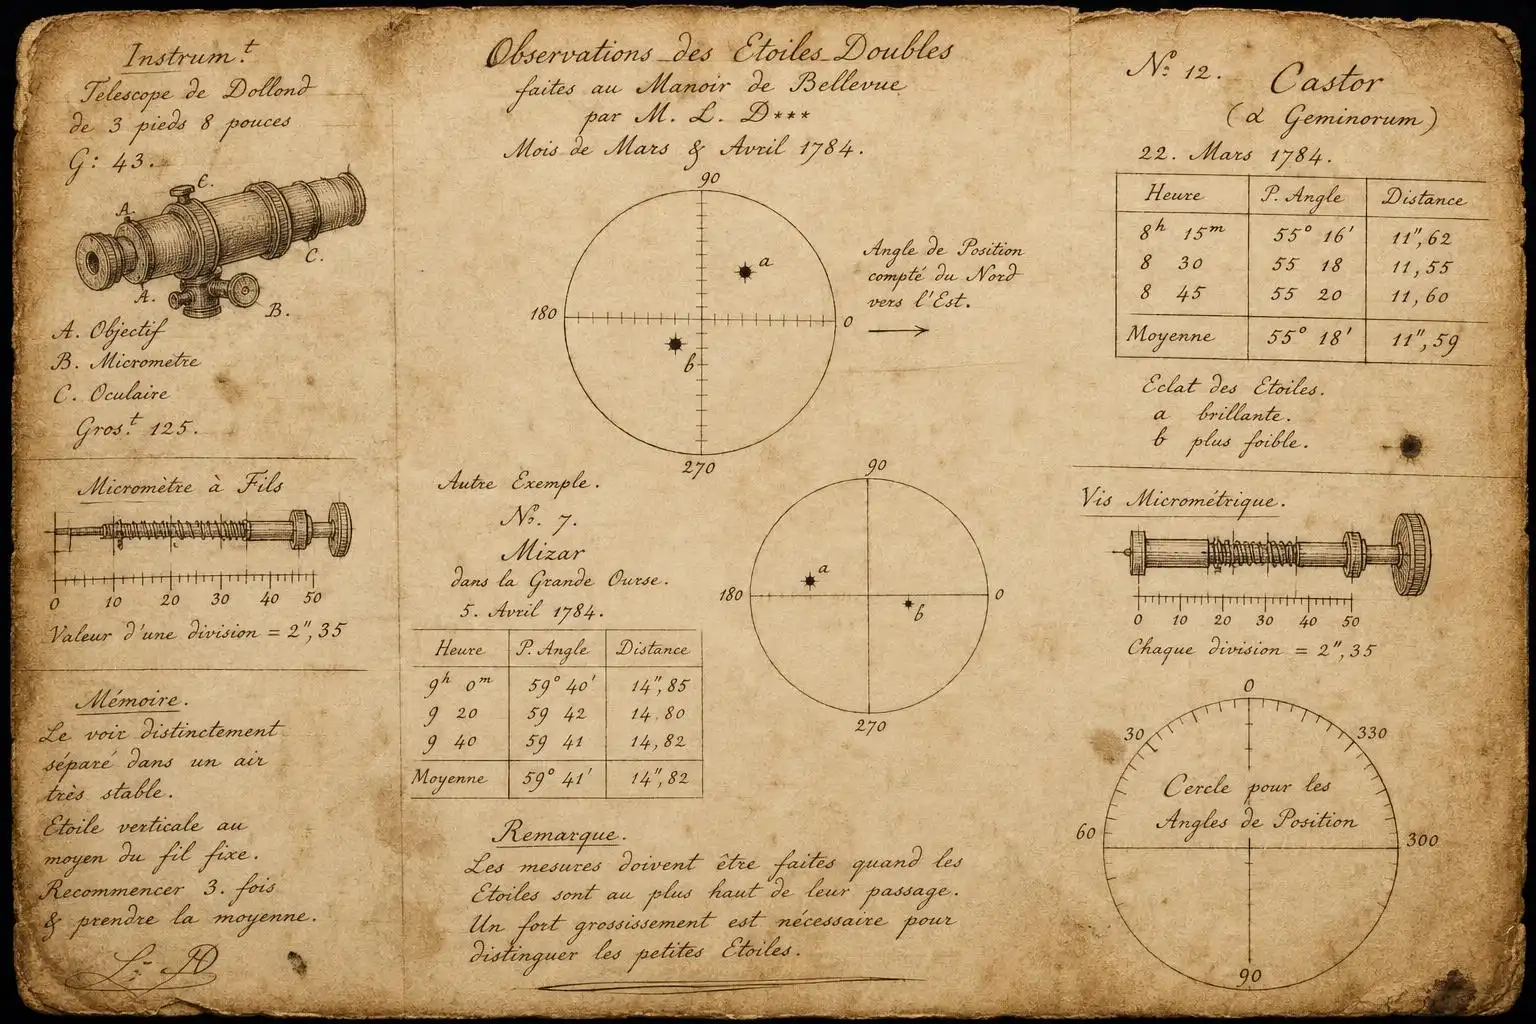 Instrum.t
Telescope de Dollond
de 3 pieds 8 pouces
G: 43.
E.
A.
C.
A.
B.
A. Objectif
B. Micrometre
C. Oculaire
Gros.t 125.
Micromètre à Fils
0 10 20 30 40 50
Valeur d'une division = 2", 35
Mémoire.
Le voir distinctement
séparé dans un air
très stable.
Etoile verticale au
moyen du fil fixe.
Recommencer 3. fois
& prendre la moyenne.
Observations des Etoiles Doubles
faites au Manoir de Bellevue
par M. L. D***
Mois de Mars & Avril 1784.
90
a
180
0
b
270
Angle de Position
compté du Nord
vers l'Est.
Autre Exemple.
No. 7.
Mizar
dans la Grande Ourse.
5. Avril 1784.
Heure P. Angle Distance
9h 0m 59° 40' 14",85
9 20 59 42 14.80
9 40 59 41 14,82
Moyenne 59° 41' 14",82
90
a
180
0
b
270
Remarque.
Les mesures doivent être faites quand les
Etoiles sont au plus haut de leur passage.
Un fort grossissement est nécessaire pour
distinguer les petites Etoiles.
No: 12.
Castor
(α Geminorum)
22. Mars 1784.
Heure P. Angle Distance
8h 15m 55° 16' 11",62
8 30 55 18 11,55
8 45 55 20 11,60
Moyenne 55° 18' 11",59
Eclat des Etoiles.
a brillante.
b plus foible.
Vis Micrométrique.
0 10 20 30 40 50
Chaque division = 2",35
0
30 330
Cercle pour les
Angles de Position
60 300
90